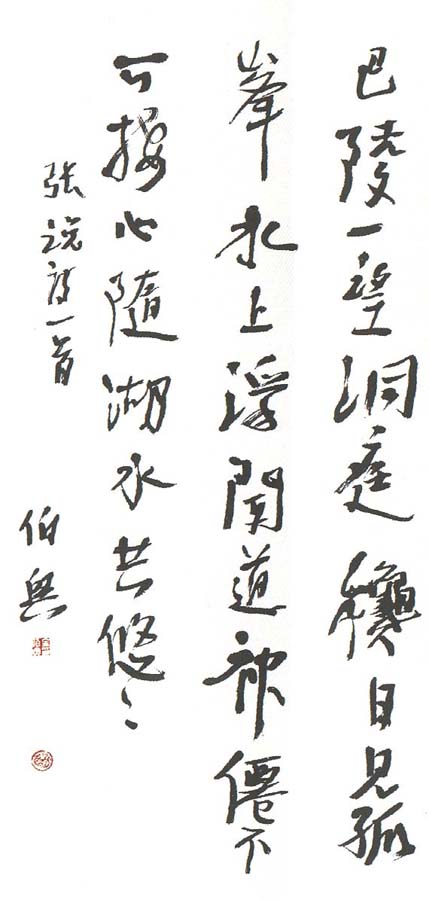 巴陵一望洞庭穐日見孤
峯水上浮聞道神僊不
可接心隨湖水共悠〻
张説詩一首
伯舆